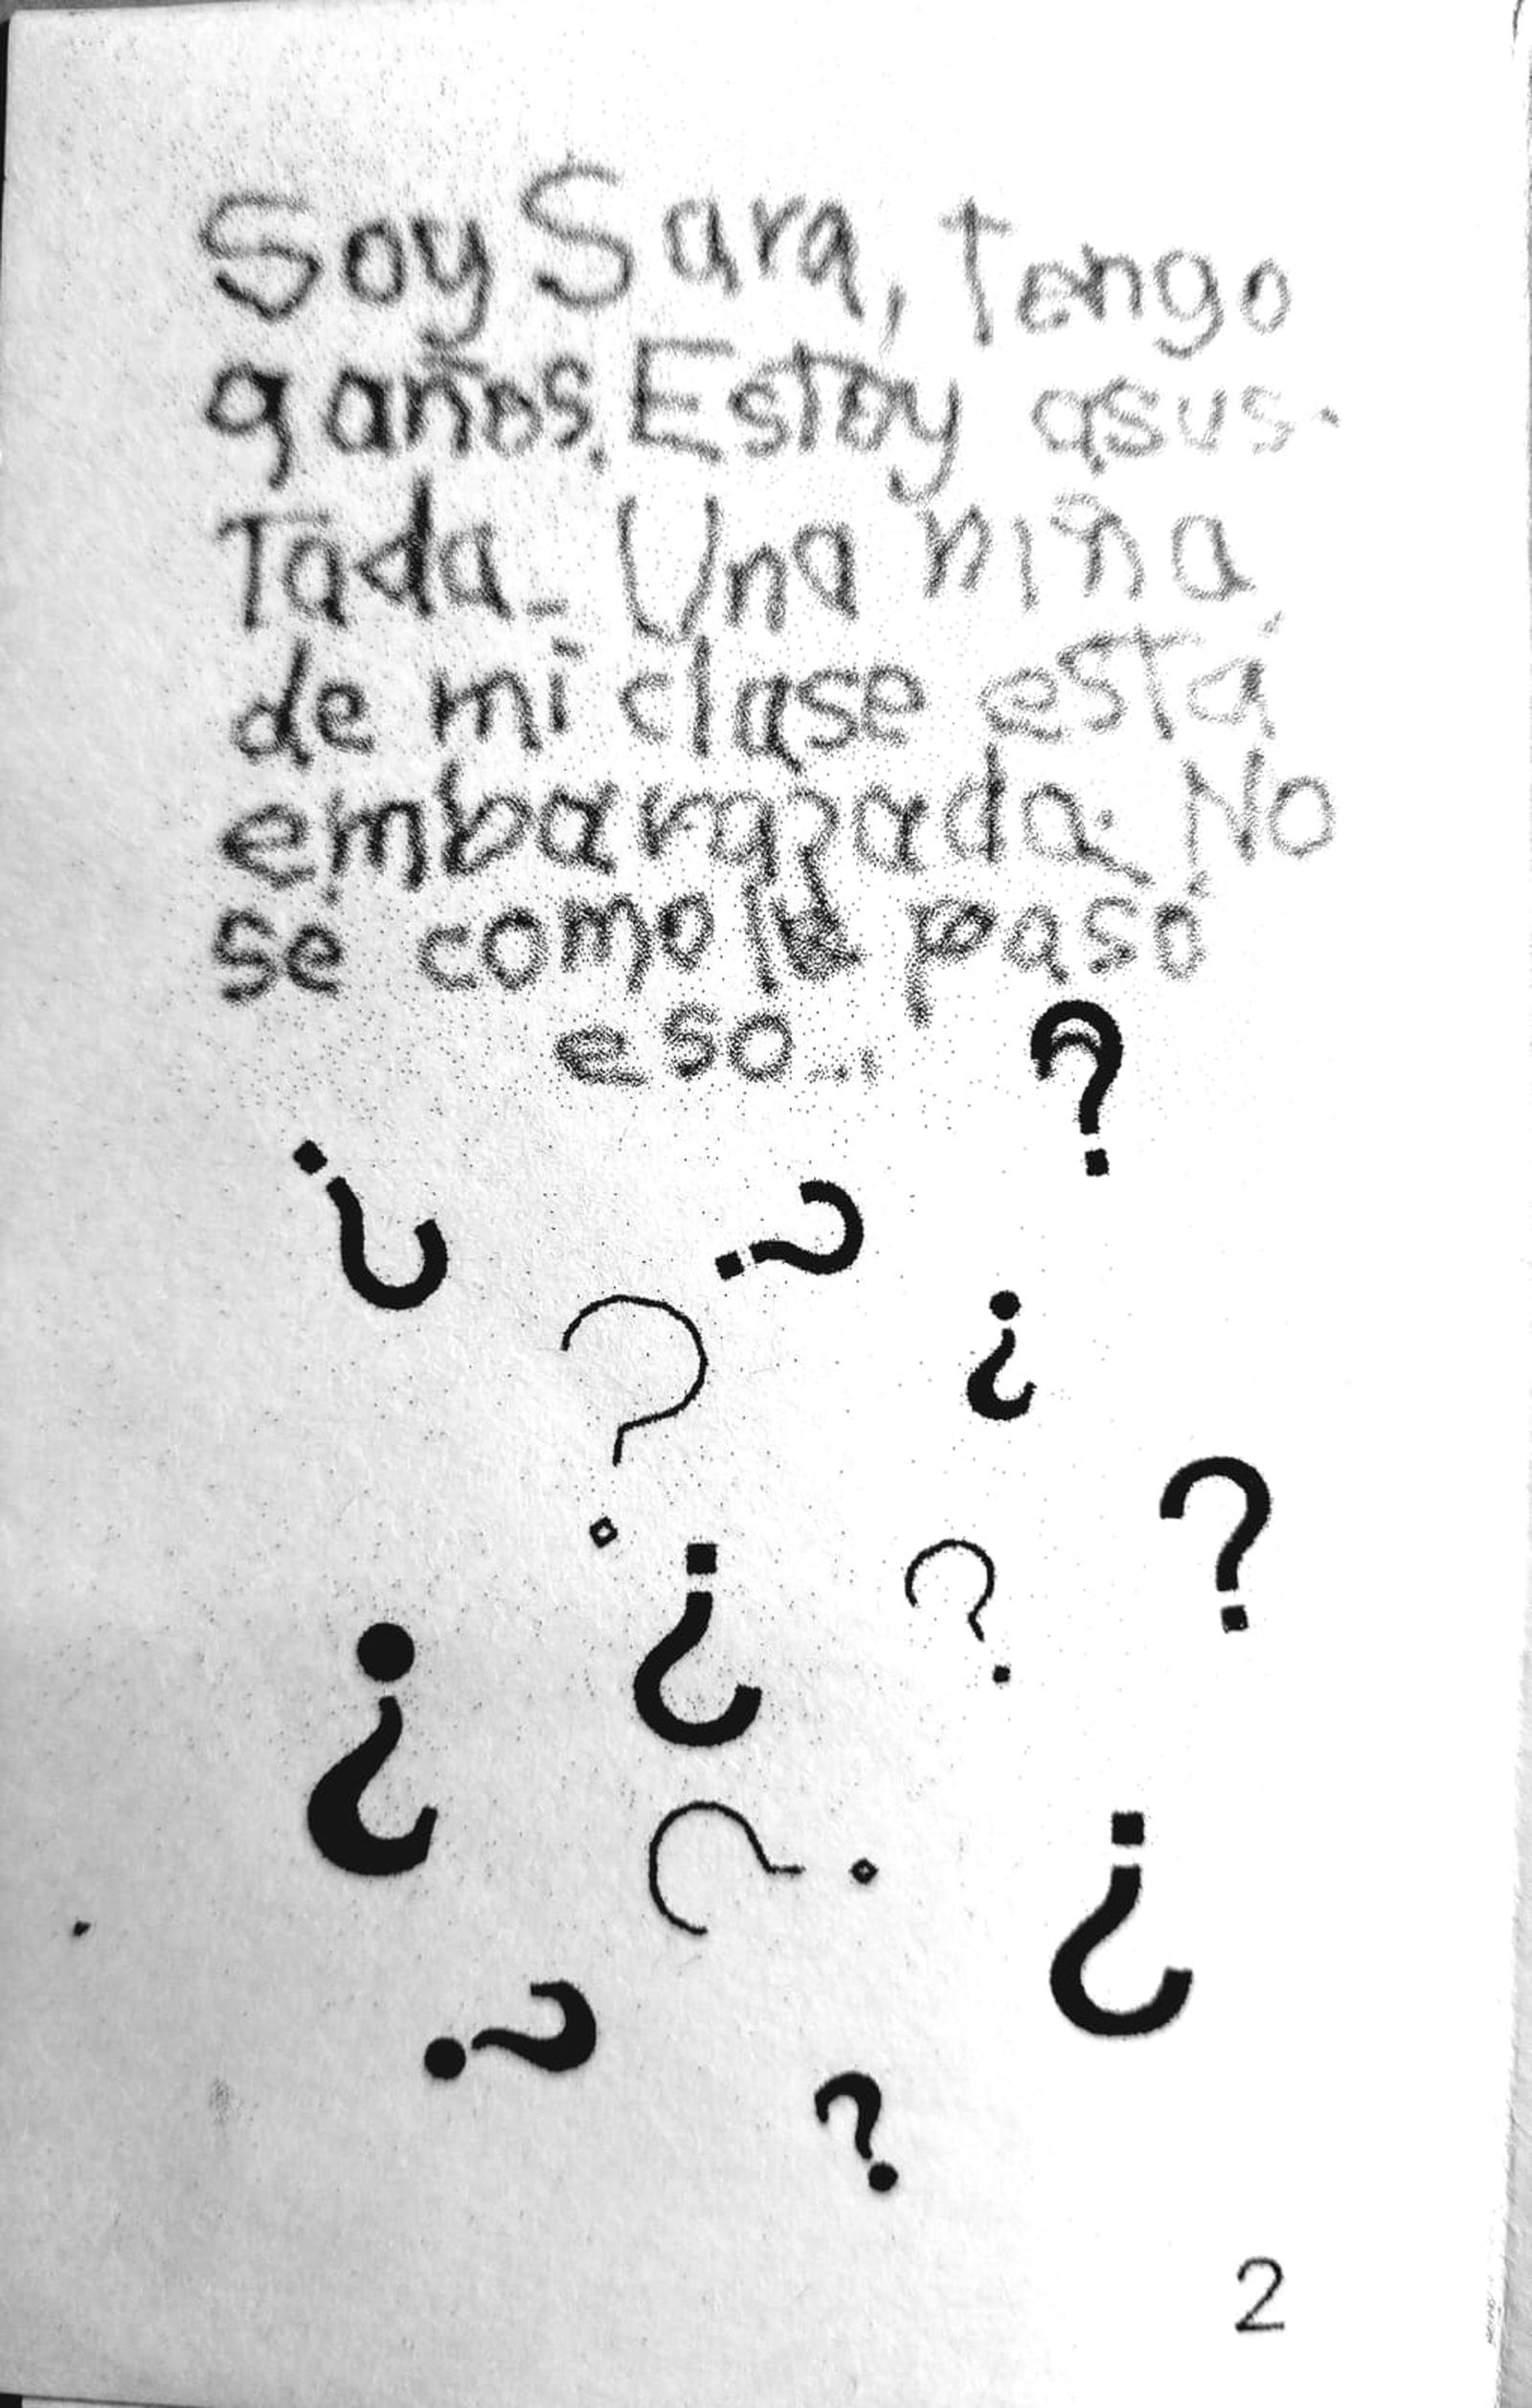 Soy Sara, Tengo
9 años. Estoy asus-
Tada. Una niña
de mi clase está
embarazada. No
se como le pasó
eso...
?
¿
?
?
¿
?
?
¿
¿
?
¿
?
?
2